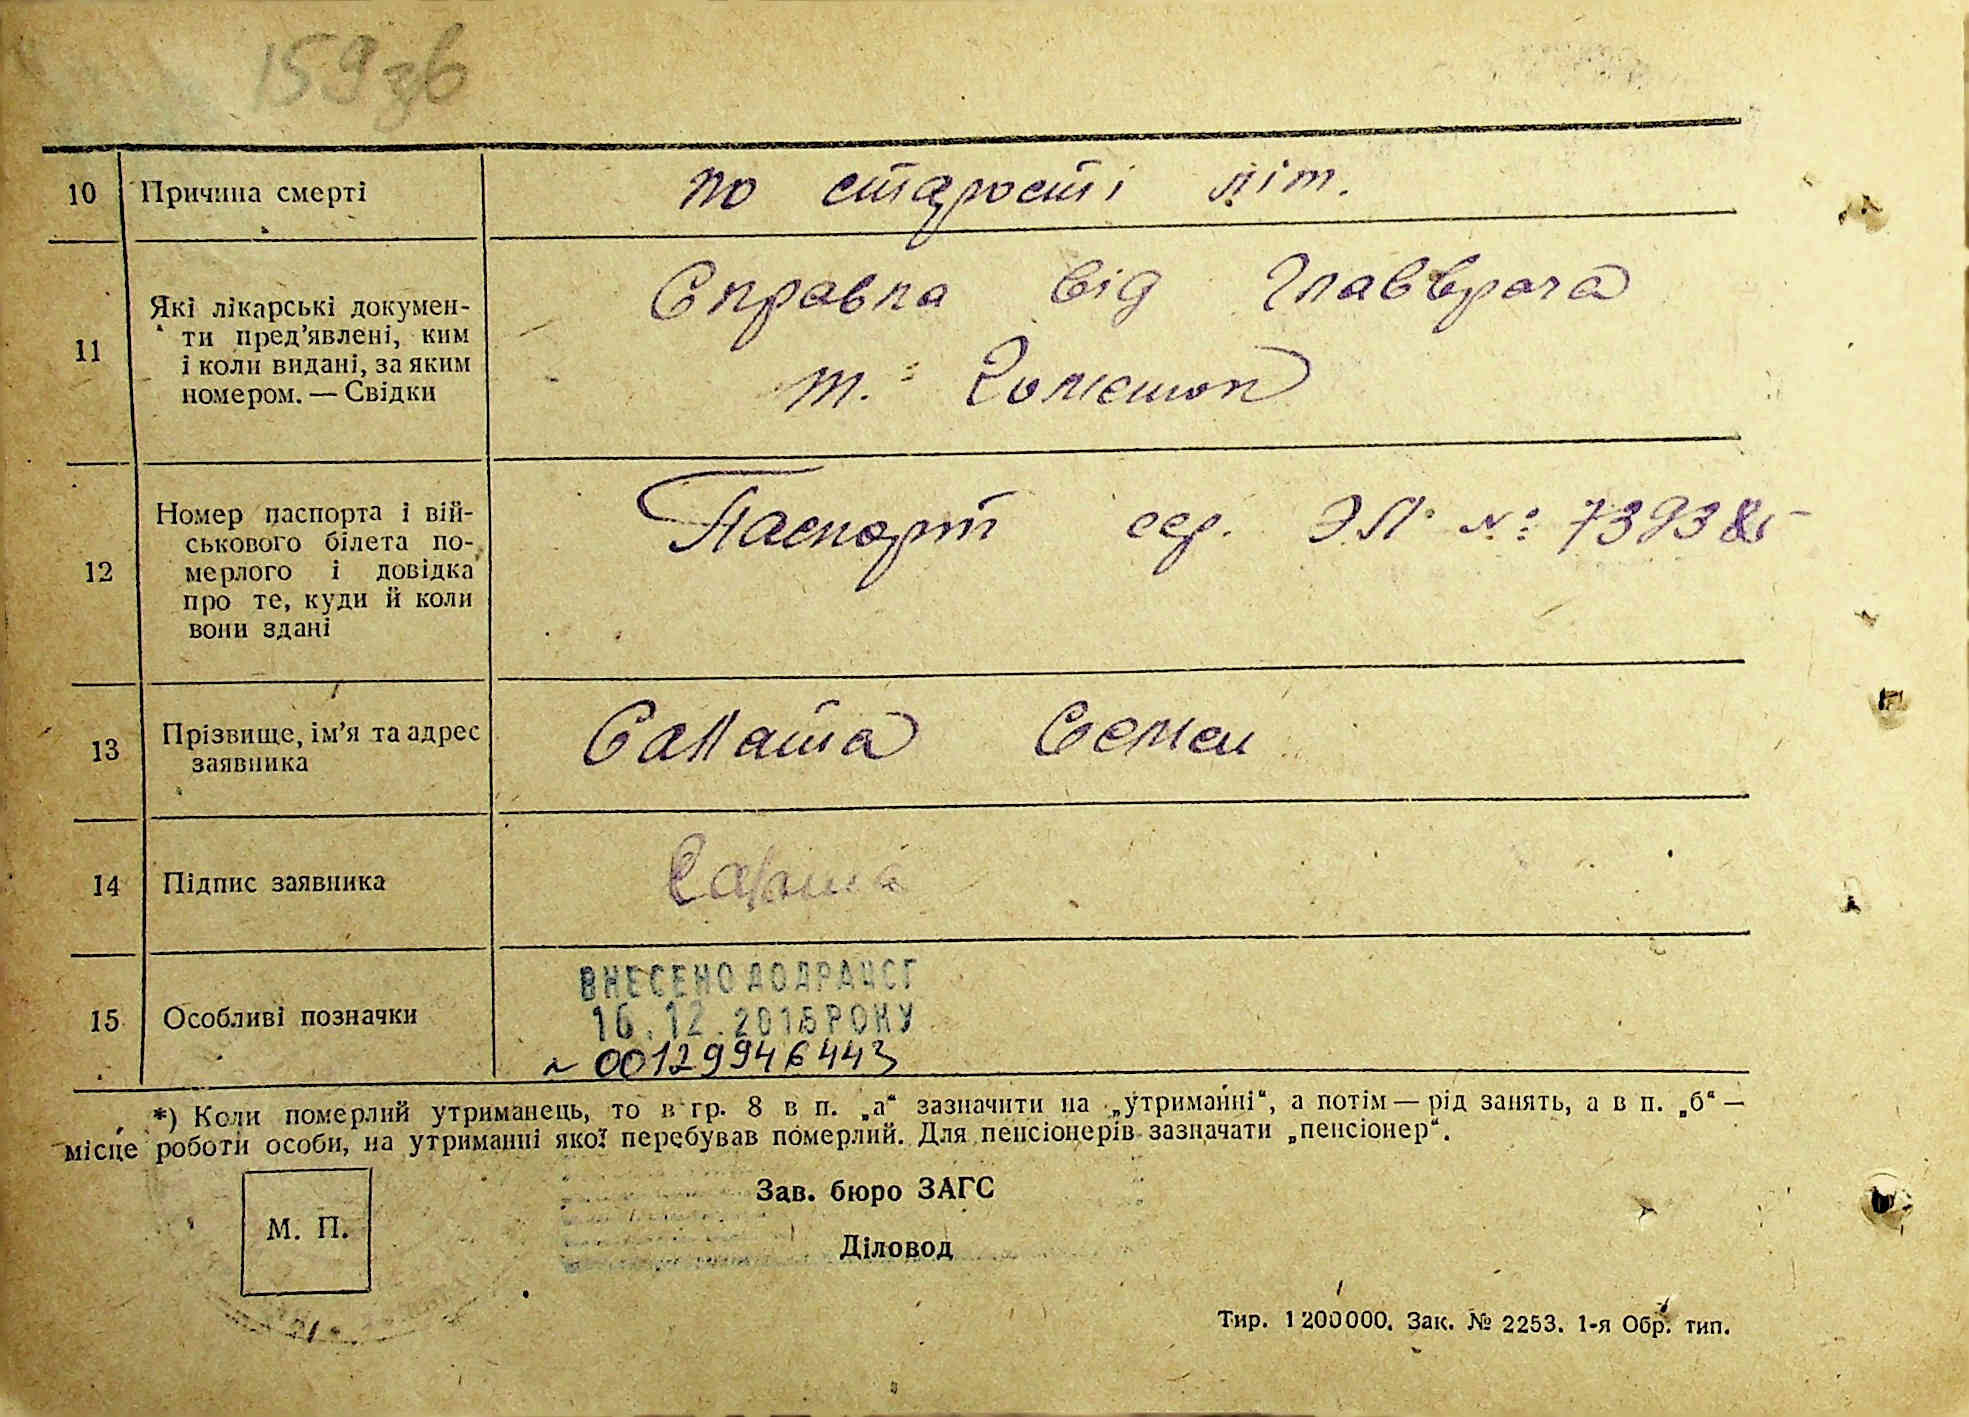 159зв
10 Причина смерті
по старості літ.
11 Які лікарські докумен-
ти пред’явлені, ким
і коли видані, за яким
номером. — Свідки
Справка від Главврача
т.
12 Номер паспорта і вій-
ськового білета по-
мерлого і довідка
про те, куди й коли
вони здані
Паспорт сер. ЭЛ №
13 Прізвище, ім’я та адрес
заявника
Салата Семен
14 Підпис заявника
15 Особливі позначки
ВНЕСЕНО ДО ДРАЦСГ
16.12.2015 РОКУ
№ 00129946443
*) Коли померлий утриманець, то в гр. 8 в п. „а“ зазначити на „утриманні“, а потім — рід занять, а в п. „б“ —
місце роботи особи, на утриманні якої перебував померлий. Для пенсіонерів зазначати „пенсіонер“.
М. П.
Зав. бюро ЗАГС
Діловод
Тир. 1200000. Зак. № 2253. 1-я Обр. тип.